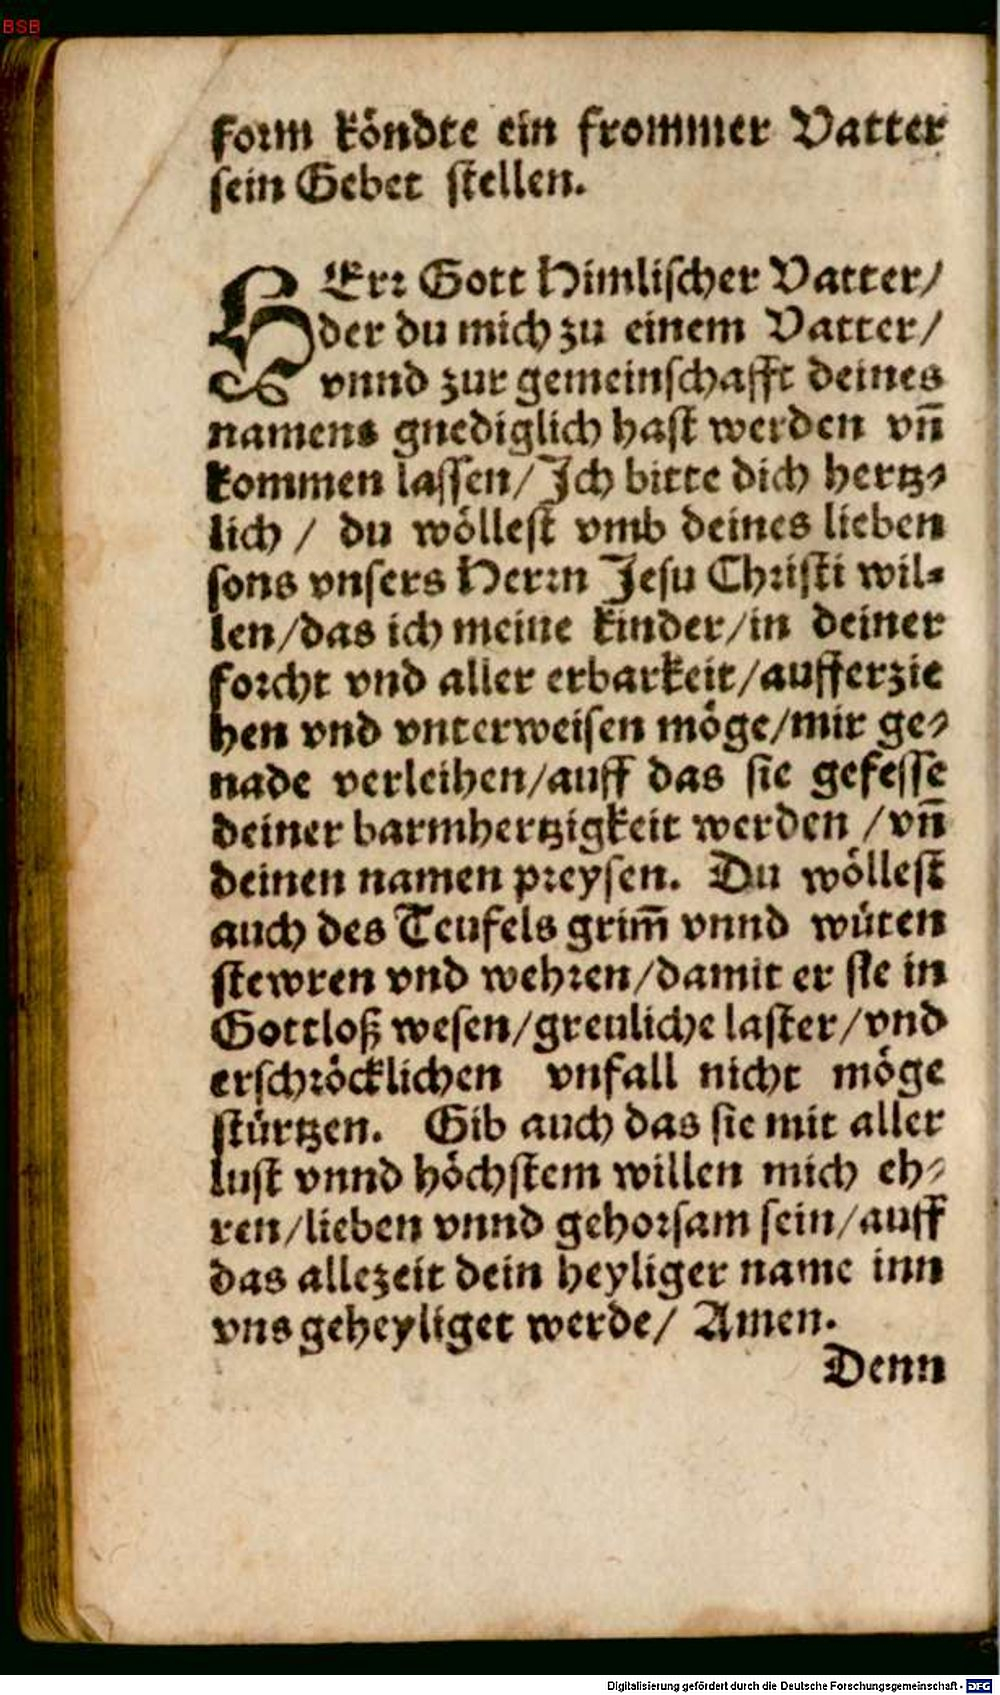 BSB
form köndte ein frommer Vatter
sein Gebet stellen.
HErr Gott Himlischer Vatter/
der du mich zu einem Vatter/
vnnd zur gemeinschafft deines
namens gnediglich hast werden vn̄
kommen lassen/ Ich bitte dich hertz-
lich / du wöllest vmb deines lieben
sons vnsers Herrn Jesu Christi wil-
len/das ich meine kinder/in deiner
forcht vnd aller erbarkeit/aufferzie
hen vnd vnterweisen möge/mir ge-
nade verleihen/auff das sie gefesse
deiner barmhertzigkeit werden /vn̄
deinen namen preysen. Du wöllest
auch des Teufels grim̄ vnnd wüten
stewren vnd wehren/damit er sie in
Gottloß wesen/greuliche laster/vnd
erschröcklichen vnfall nicht möge
stürtzen. Gib auch das sie mit aller
lust vnnd höchstem willen mich eh-
ren/lieben vnnd gehorsam sein/auff
das allezeit dein heyliger name inn
vns geheyliget werde/ Amen.
Denn
Digitalisierung gefördert durch die Deutsche Forschungsgemeinschaft - DFG